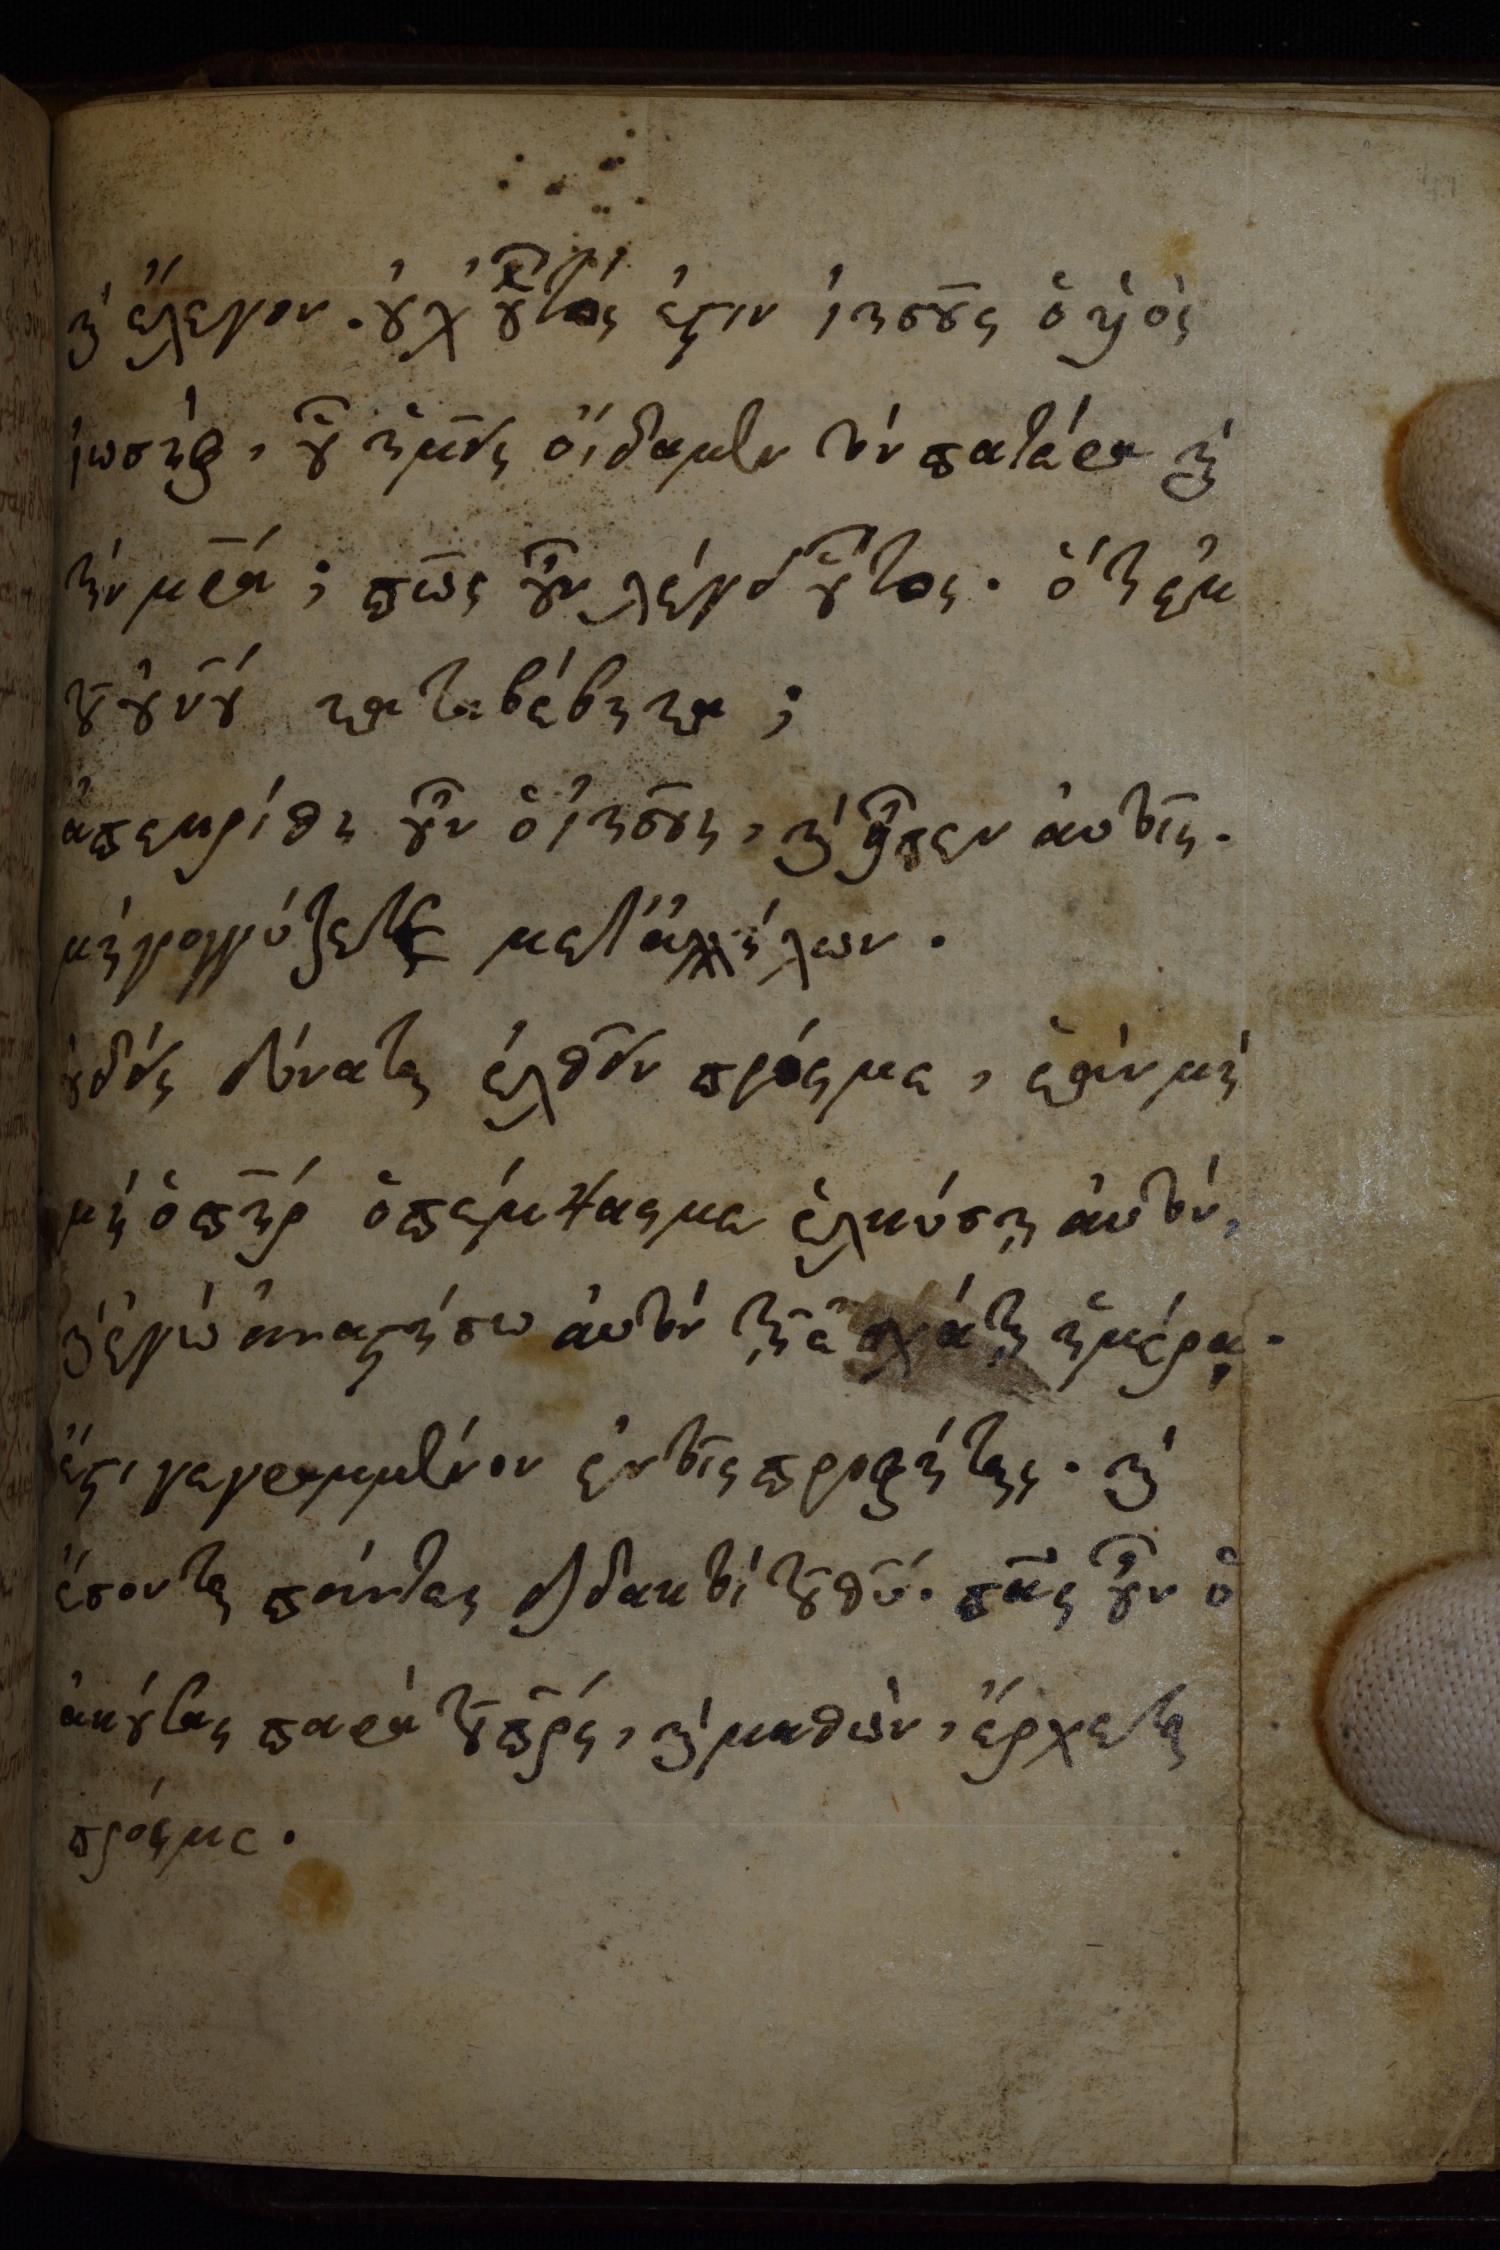 καὶ ἔλεγον· οὐχ οὗτός ἐστιν ἰησοῦς ὁ υἱὸς
ἰωσήφ, οὗ ἡμεῖς οἴδαμεν τὸν πατέρα καὶ
τὴν μρ̅α; πῶς οὖν λέγει οὗτος· ὅτι ἐκ
τοῦ οὐν̅οῦ καταβέβηκα;
ἀπεκρίθη οὖν ὁ ἰησοῦς, καὶ εἶπεν αὐτοῖς·
μὴ γογγύζετε μετ' ἀλλήλων·
οὐδεὶς δύναται ἐλθεῖν πρός με, ἐὰν μὴ
μὴ ὁ πη̅ρ ὁ πέμψας με ἑλκύσῃ αὐτόν,
καὶ ἐγὼ ἀναστήσω αὐτὸν τῇ ἐσχάτῃ ἡμέρᾳ·
ἔστι γεγραμμένον ἐν τοῖς προφήταις· καὶ
ἔσονται πάντες διδακτοὶ τοῦ θυ̅· πᾶς οὖν ὁ
ἀκούσας παρὰ τοῦ πρ̅ς, καὶ μαθὼν, ἔρχεται
πρός με·